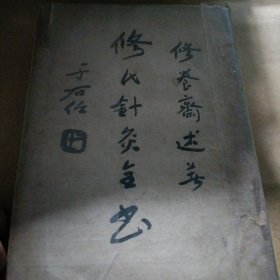 修養齋述著
修氏針灸全书
于右任